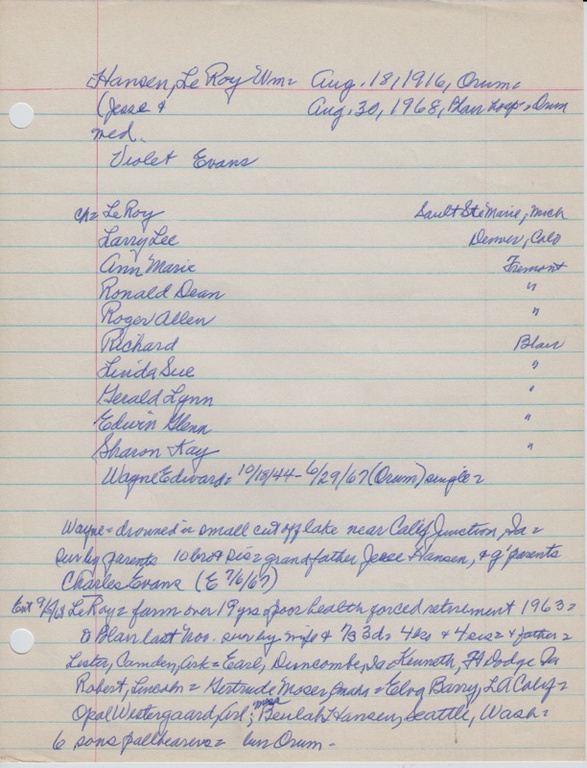 Hansen, Le Roy Wm= Aug. 18, 1916, Orum=
(Jesse & Aug. 30, 1968, Blair hosp., Orum
med.
Violet Evans
ch= Le Roy Sault Ste Marie, Mich
Larry Lee Denver, Colo
Ann Marie Fremont
Ronald Dean "
Roger Allen "
Richard Blair
Linda Sue "
Gerald Lynn "
Edwin Glenn "
Sharon Kay "
Wayne Edward= 10/18/44- 6/29/67 (Orum) single=
Wayne= drowned in small cut off lake near Calif Junction, Ia=
sur by parents 10 bro & sis= grandfather Jesse Hansen, & g'parents
Charles Evans (E 7/6/67)
Ent LeRoy= farm over 19 yrs & poor health forced retirement 1963=
Blair last Nov. sur by wife & 7s 3ds 4 & 4 sis= & father=
Lester, Camden, Ark= Earl, Duncombe, Ia= Kenneth, Ft Dodge Ia
Robert, Lincoln= Gertrude Moser, = Barry, LA Calif=
Opal Westergaard, Arl; Mrs Beulah Hansen, Seattle, Wash=
6 sons pallbearers= bur Orum-